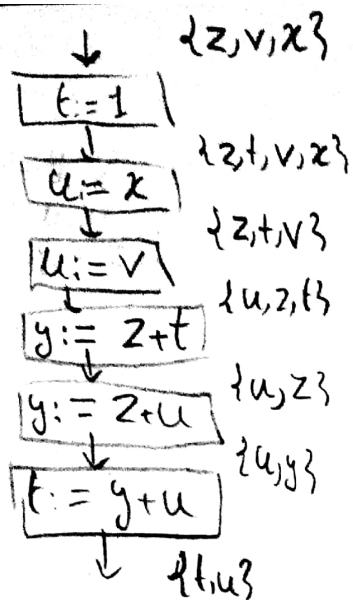 {z,v,x}
t:=1
{z,t,v,x}
u:=x
{z,t,v}
u:=v
{u,z,t}
y:=z+t
{u,z}
y:=z+u
{u,y}
t:=y+u
{t,u}